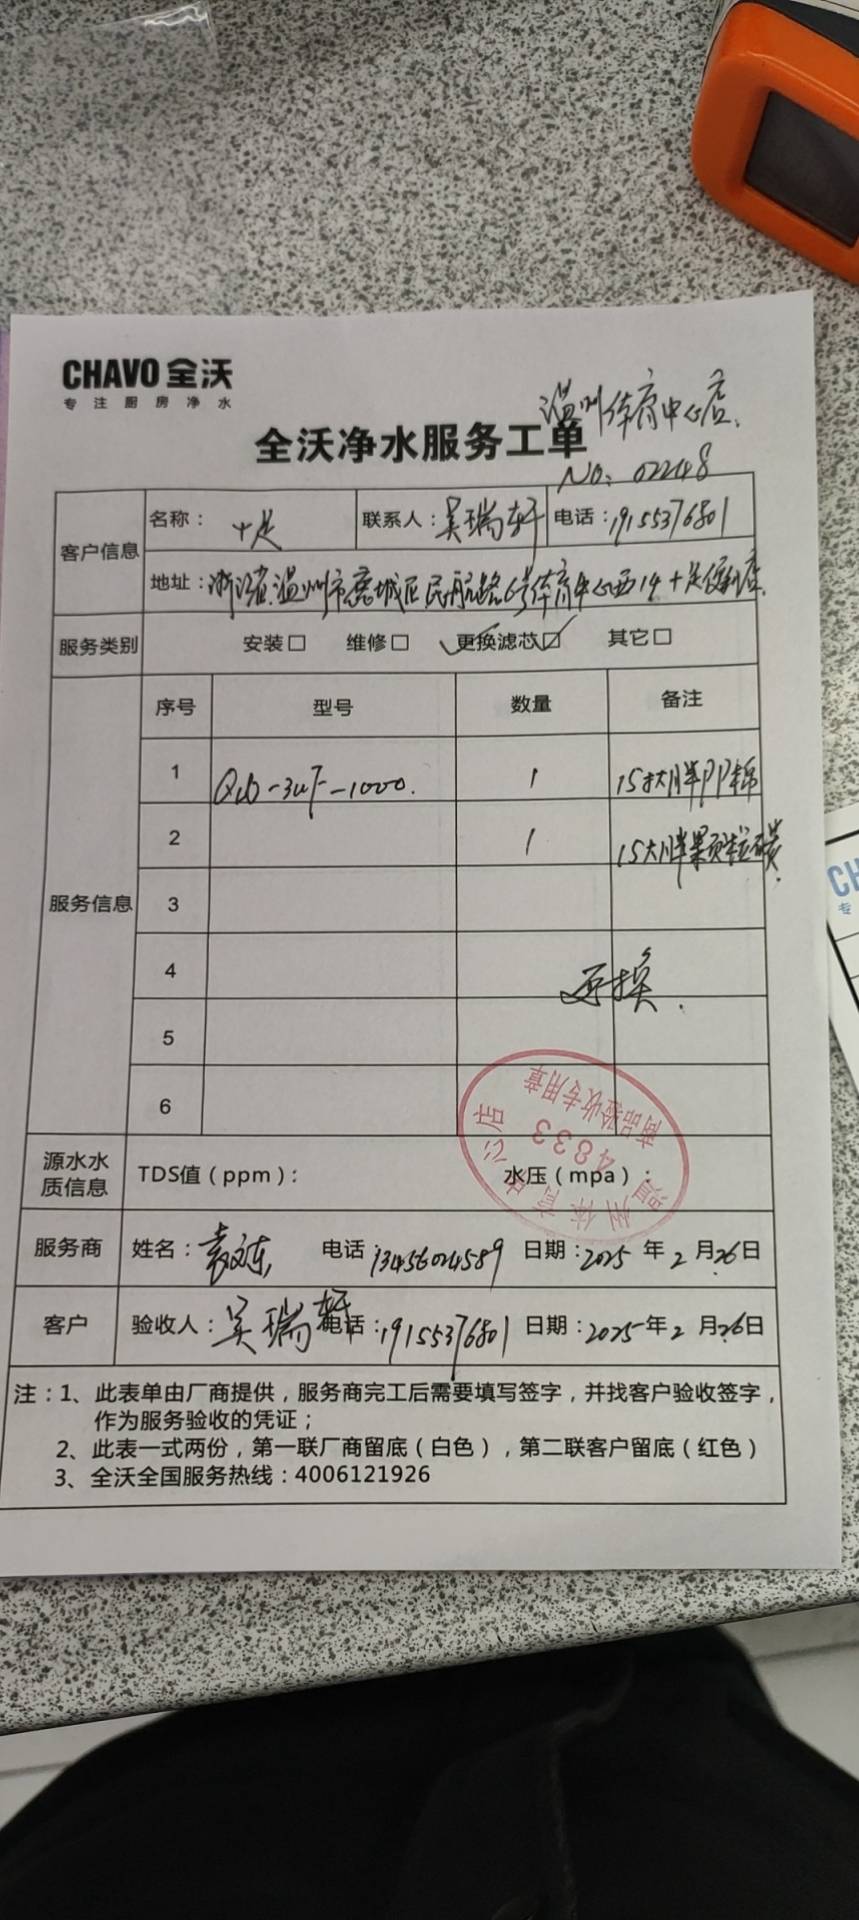 CHAVO 全沃
专注厨房净水
温州体育中心店
全沃净水服务工单
No: 02248
客户信息 名称： 十足 联系人：吴瑞轩 电话：19155376801
地址：浙江省温州市鹿城区民航路6号体育中心西14十足便利店
服务类别 安装□ 维修□ 更换滤芯☑ 其它□
服务信息 序号 型号 数量 备注
1 -3UF-1000. 1 15寸大胖PP棉
2 1 15大胖颗粒碳
3
4 更换.
5
6
温州体育中心店
4833
商品验收专用章
源水水质信息 TDS值（ppm）： 水压（mpa）：
服务商 姓名：袁文东 电话：13456024589 日期：2025 年 2 月 26 日
客户 验收人：吴瑞轩 电话：19155376801 日期：2025 年 2 月 26 日
注：1、此表单由厂商提供，服务商完工后需要填写签字，并找客户验收签字，
作为服务验收的凭证；
2、此表一式两份，第一联厂商留底（白色），第二联客户留底（红色）
3、全沃全国服务热线：4006121926
CH
专